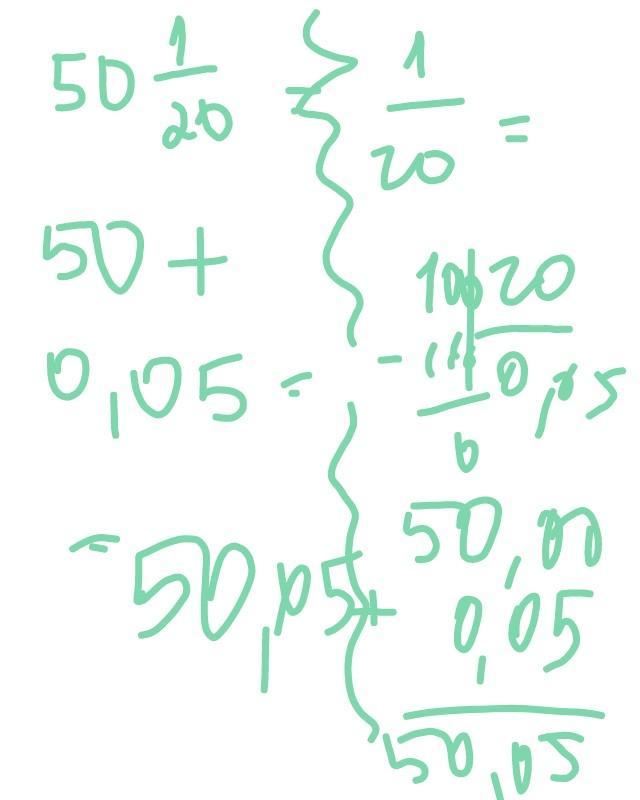 50 1/20
50 +
0,05 =
= 50,05
1/20 =
100 | 20
- 100 | 0,05
0
50,00
+ 0,05
50,05